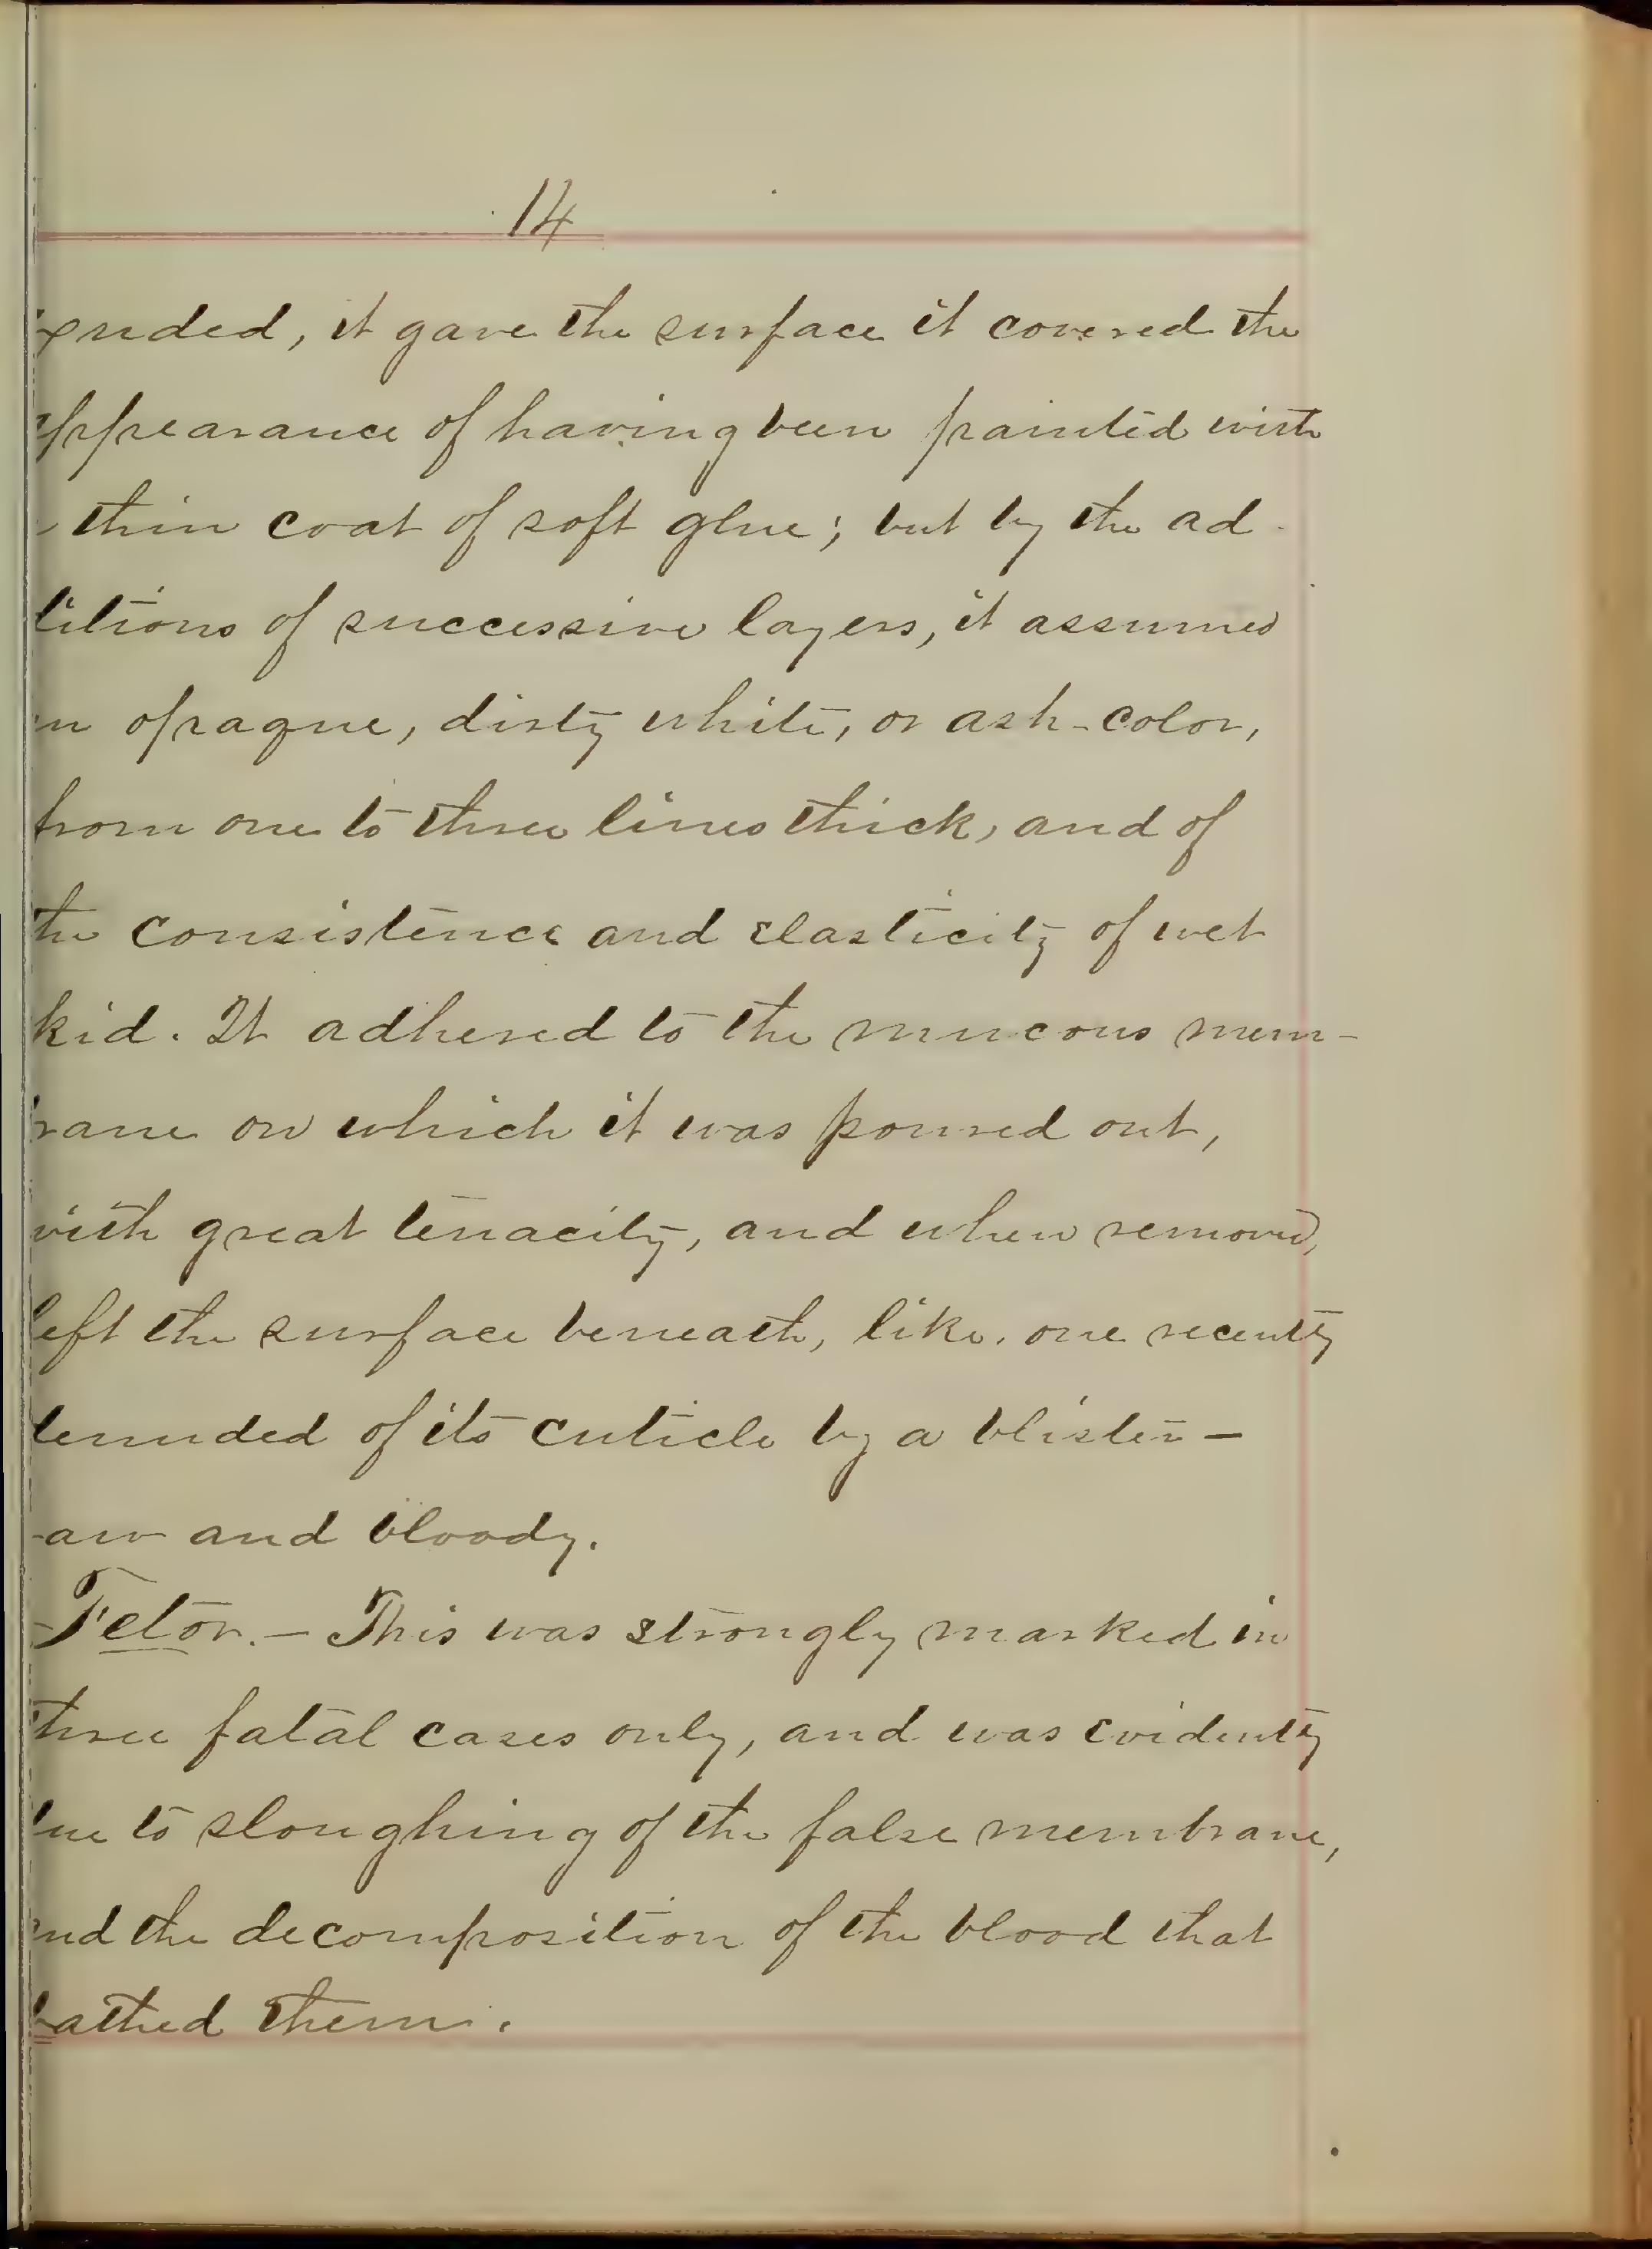 14
exuded, it gave the surface it covered the
appearance of having been painted with
a thin coat of soft glue; but by the ad-
ditions of successive layers, it assumed
an opaque, dirty white, or ash-color,
from one to three lines thick, and of
the consistence and elasticity of wet
kid. It adhered to the mucous mem-
brane on which it was poured out,
with great tenacity, and when removed,
left the surface beneath, like, one recently
denuded of its cuticle by a blister —
raw and bloody.
Fetor. — This was strongly marked in
three fatal cases only, and was evidently
due to sloughing of the false membrane,
and the decomposition of the blood that
bathed them.